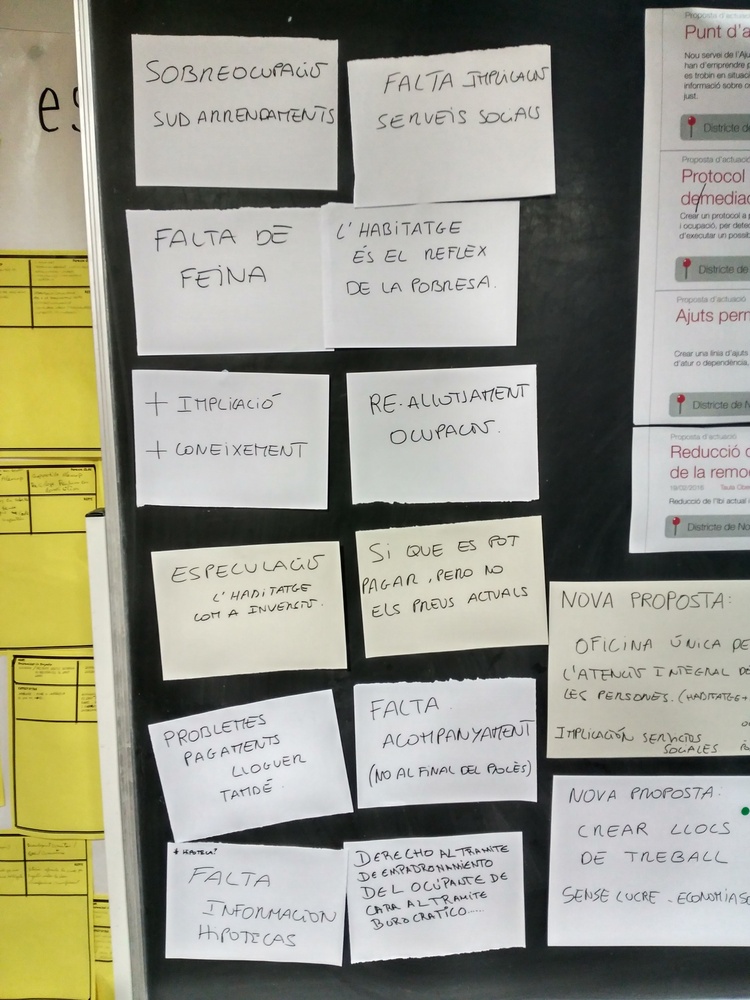 SOBREOCUPACIÓ
SUBARRENDAMENTS
FALTA IMPLICACIÓ
SERVEIS SOCIALS
FALTA DE
FEINA
L'HABITATGE
ÉS EL REFLEX
DE LA POBRESA.
+ IMPLICACIÓ
+ CONEIXEMENT
RE-ALLOTJAMENT
OCUPACIÓ.
ESPECULACIÓ
L'HABITATGE
COM A INVERSIÓ.
SI QUE ES POT
PAGAR, PERO NO
ELS PREUS ACTUALS
PROBLEMES
PAGAMENTS
LLOGUER
TAMBÉ.
FALTA
ACOMPANYAMENT
(NO AL FINAL DEL PROCÈS)
+ HIPOTECA?
FALTA
INFORMACION
HIPOTECAS
DERECHO AL TRAMITE
DE EMPADRONAMIENTO
DEL OCUPANTE DE
CARA AL TRAMITE
BUROCRATICO.....
Proposta d'actuació
Punt d'a
Nou servei de l'Aju
han d'emprendre p
es trobin en situaci
informació sobre c
just.
Districte de
Proposta d'actuació
Protocol
demediac
Crear un protocol a p
i ocupació, per dete
d'executar un possib
Districte de
Proposta d'actuació
Ajuts perm
Crear una línia d'ajuts
d'atur o dependència,
Districte de N
Proposta d'actuació
Reducció d
de la remo
19/02/2016 Taula Obe
Reducció de l'Ibi actual i
Districte de No
NOVA PROPOSTA:
OFICINA ÚNICA DE
L'ATENCIÓ INTEGRAL DE
LES PERSONES. (HABITATGE+
IMPLICACIÓN SERVICIOS
SOCIALES
NOVA PROPOSTA:
CREAR LLOCS
DE TREBALL
SENSE LUCRE - ECONOMIA SO